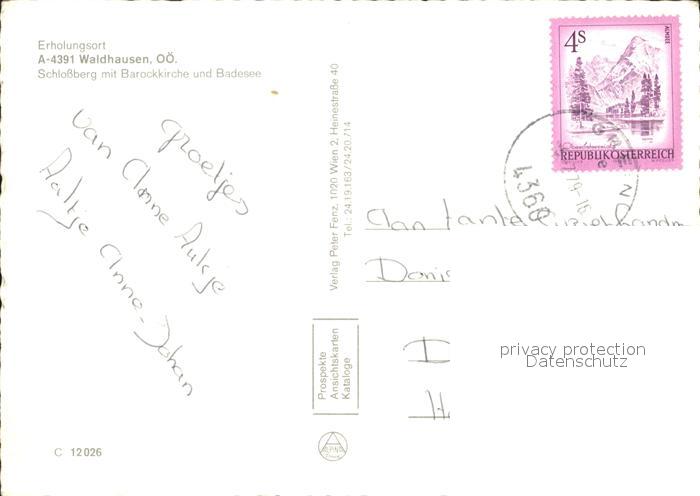 Erholungsort
A-4391 Waldhausen, OÖ.
Schloßberg mit Barockkirche und Badesee
Groetjes
van Anne Aukje
Aaltje Anne-Johan
C 12026
Verlag Peter Fenz, 1020 Wien 2, Heinestraße 40
Tel.: 24.19.163/24.20.714
Prospekte
Ansichtskarten
Kataloge
ALPINE
4S
ALMSEE
REPUBLIK ÖSTERREICH
4360
79-16
Aan tante
privacy protection
Datenschutz